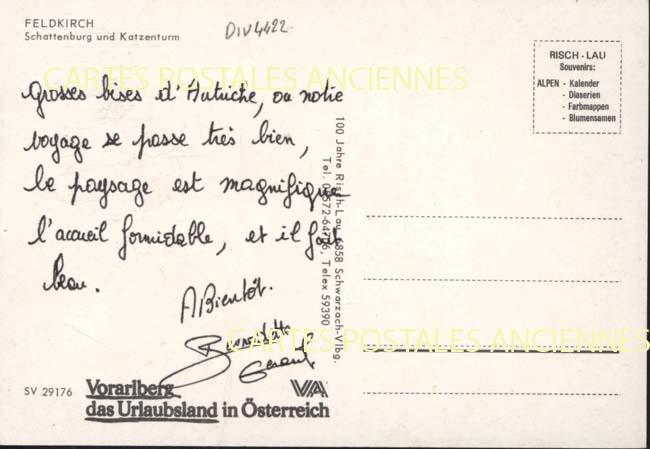 FELDKIRCH
Schattenburg und Katzenturm
DIV4422
CARTES POSTALES ANCIENNES
Grosses bises d'Autriche, ou notre
voyage se passe très bien,
le paysage est magnifique
l'accueil formidable, et il fait
beau.
A Bientôt.
Bernadette
Gérard
SV 29176
Vorarlberg
das Urlaubsland in Österreich
VA
100 Jahre Risch-Lau, 6858 Schwarzach-Vlbg.
Telex 59390
RISCH - LAU
Souvenirs:
ALPEN - Kalender
- Diaserien
- Farbmappen
- Blumensamen
CARTES POSTALES ANCIENNES